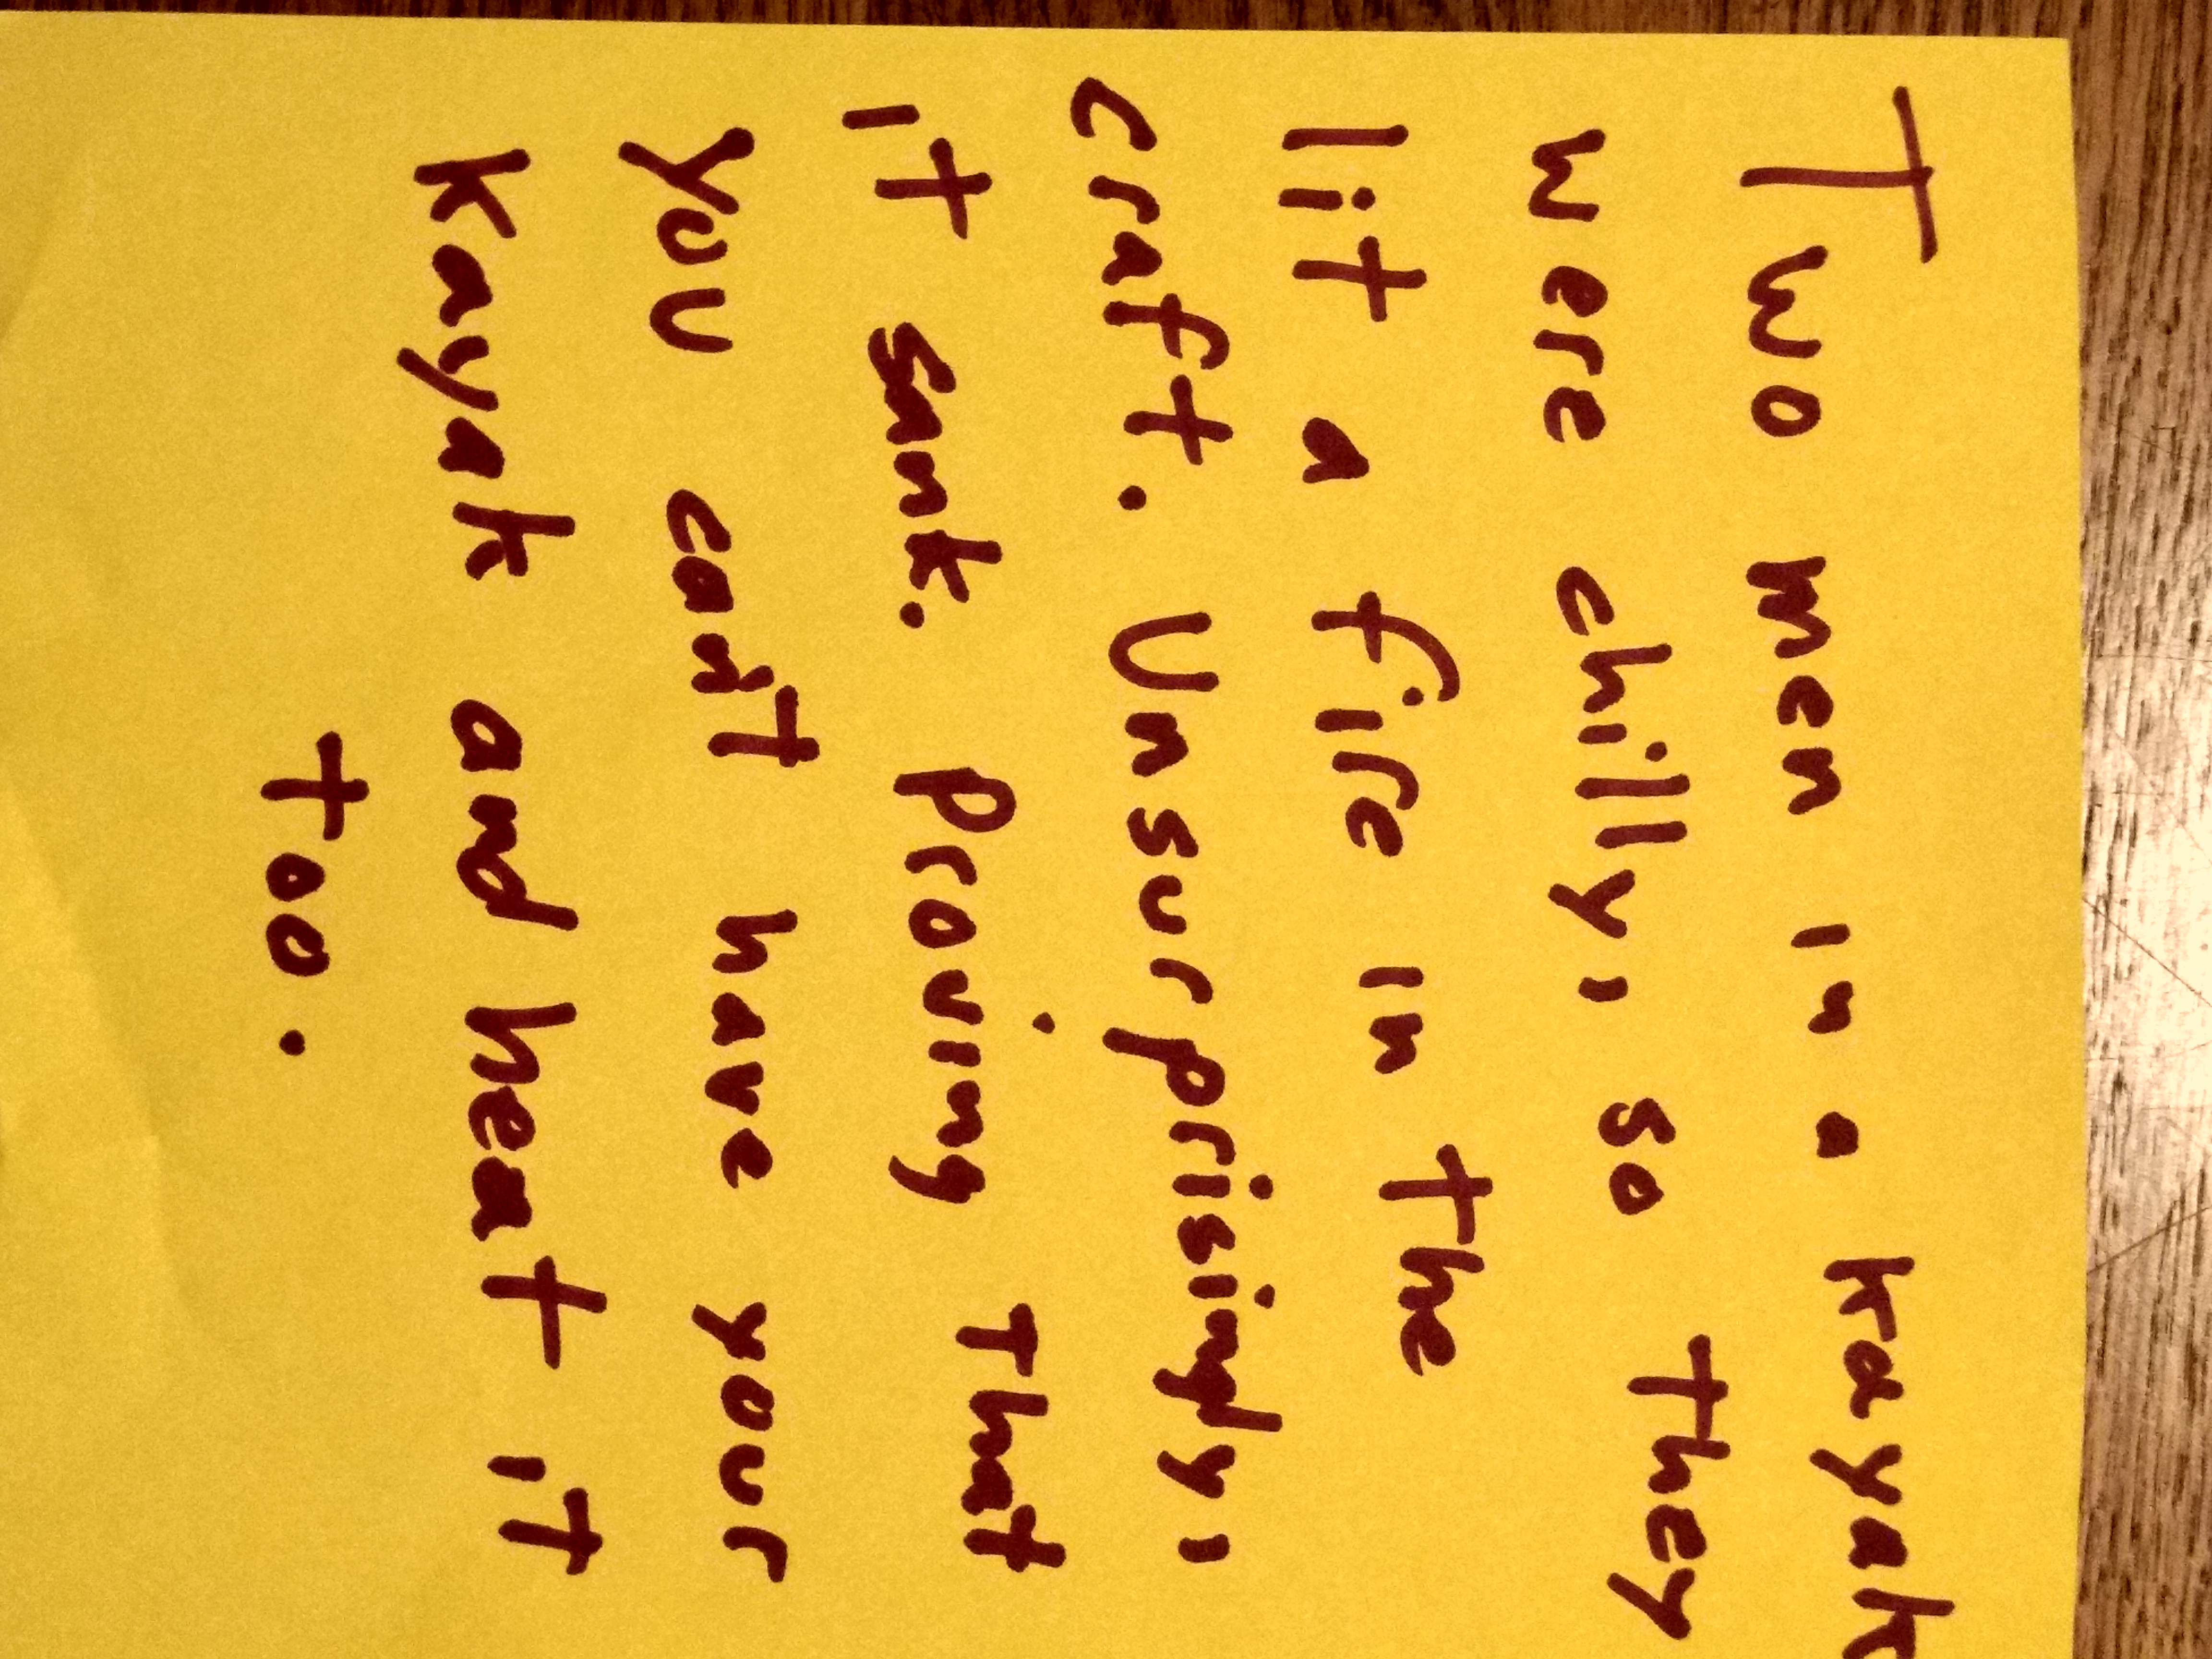 Two men in a kayak
were chilly, so they
lit a fire in the
craft. Unsurprisingly,
it sank. Proving that
you can't have your
Kayak and heat it
too.